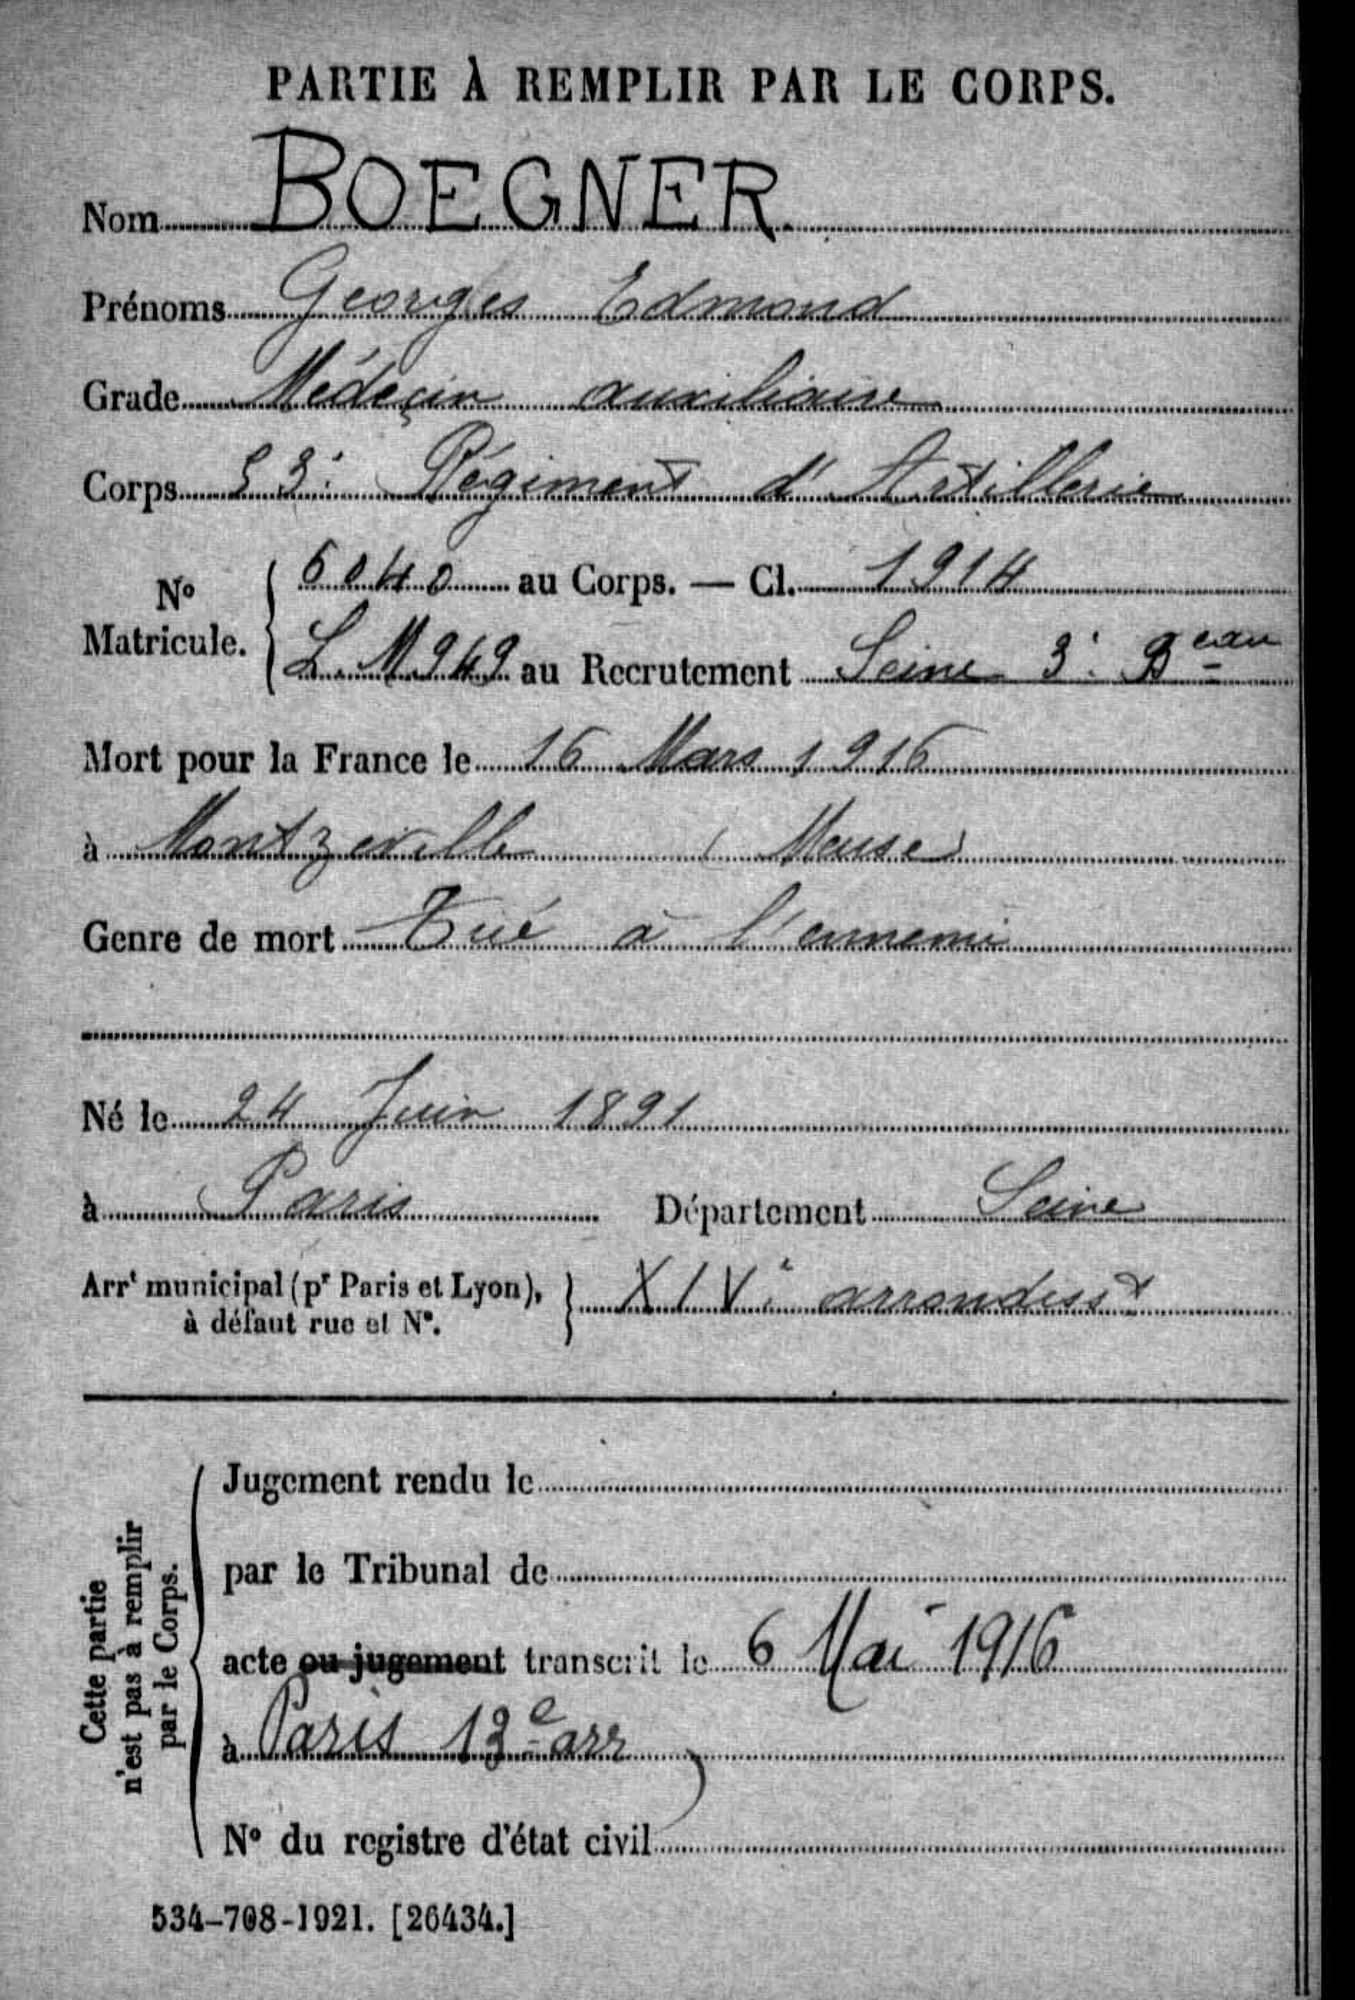 PARTIE À REMPLIR PAR LE CORPS.
Nom BOEGNER.
Prénoms Georges Edmond
Grade Médecin auxiliaire
Corps 53e Régiment d'Artillerie
No Matricule. 6040 au Corps. — Cl. 1914
L.M 949 au Recrutement Seine 3e Beau
Mort pour la France le 16 Mars 1916
à Montzeville (Meuse)
Genre de mort Tué à l'ennemi
Né le 24 Juin 1891
à Paris Département Seine
Arrt municipal (pr Paris et Lyon), XIVe arrondisst
à défaut rue et No.
Cette partie
n'est pas à remplir
par le Corps.
Jugement rendu le
par le Tribunal de
acte ou jugement transcrit le 6 Mai 1916
à Paris 13e arr
No du registre d'état civil
534-708-1921. [26434.]